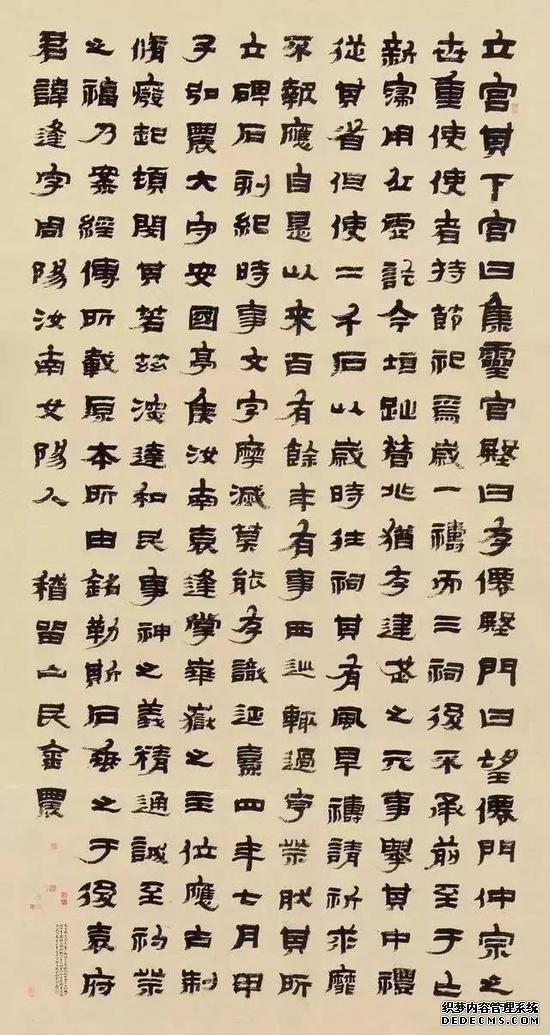 立宮其下宮曰集靈宮殿曰存僊殿門曰望僊門仲宗之
世重使使者持節祀焉歲一禱而三祠後不承前至于亡
新寖用丘虛訖今垣趾營兆猶存建武之元事舉其中禮
從其省但使二千石以歲時往祠其有風旱禱請祈求靡
不報應自是以來百有餘年有事西巡輒過享祭然其所
立碑石刻紀時事文字摩滅莫能存識延熹四年七月甲
子弘農大守安國亭侯汝南袁逢掌華嶽之主位應古制
脩癈起頓閔其若茲深達和民事神之義精通誠至礿祭
之福乃案經傳所載原本所由銘勒斯石垂之于後袁府
君諱逢字周陽汝南女陽人 稽留山民金農
织梦内容管理系统
DEDECMS.COM